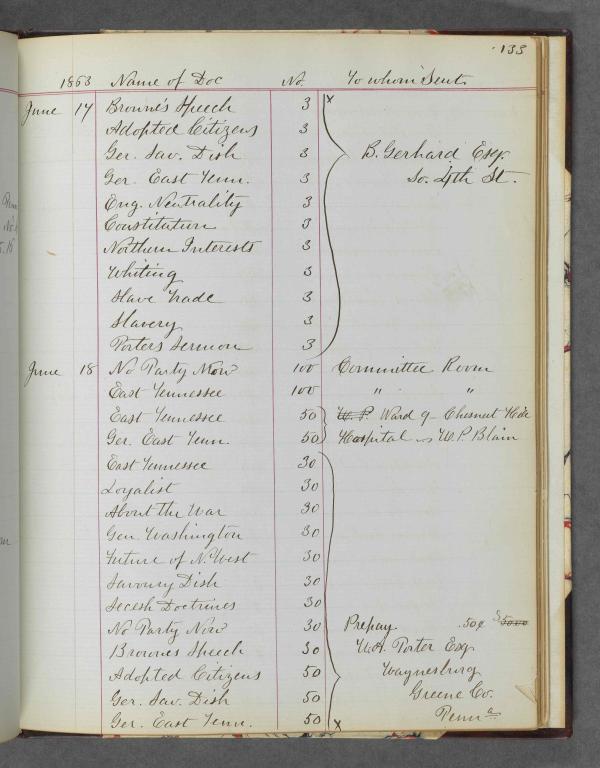 133
1863 Name of Doc No. To whom Sent
June 17 Browne's Speech 3 x
Adopted Citizens 3
Ger. Sav. Dish 3 B. Gerhard Esq.
Ger. East Tenn. 3 So. 4th St.
Eng. Neutrality 3
Constitution 3
Northern Interests 3
Whiting 3
Slave Trade 3
Slavery 3
Porters Sermon 3
June 18 No Party Now 100 Committee Room
East Tennessee 100 " "
East Tennessee 50 W. P. Ward 9 Chesnut
Ger. East Tenn. 50 Hospital W. P. Blain
East Tennessee 30
Loyalist 30
About the War 30
Gen. Washington 30
Future of N. West 30
Savoury Dish 30
Secesh Doctrines 30
No Party Now 30 Prepay .50¢
Brownes Speech 30 Porter Esq
Adopted Citizens 50 Waynesburg
Ger. Sav. Dish 50 Greene Co.
Ger. East Tenn. 50 x Penna